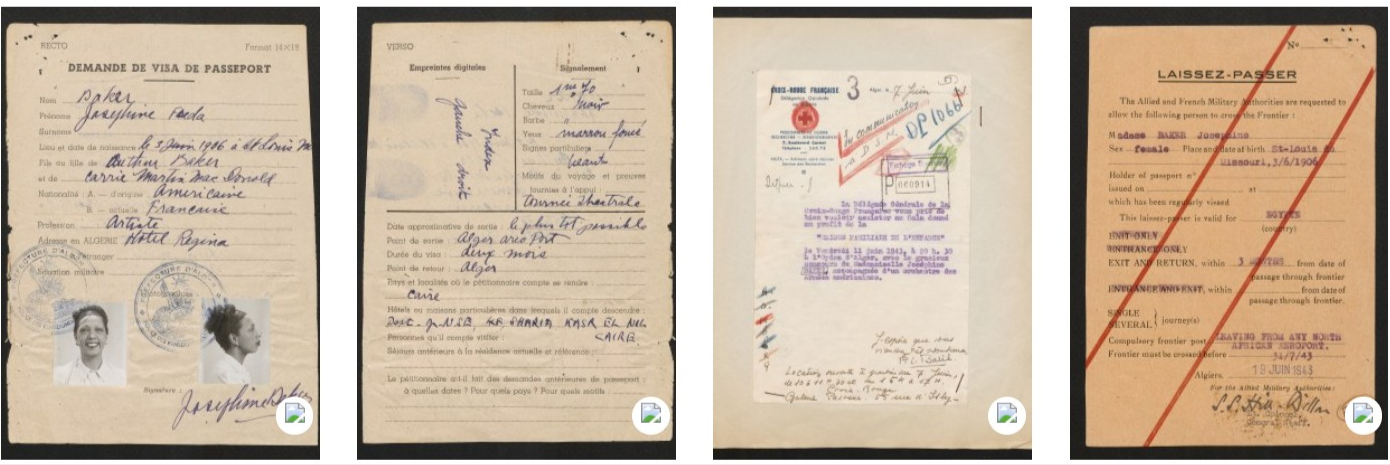 RECTO
Format 14×19
DEMANDE DE VISA DE PASSEPORT
Nom Baker
Prénoms Joséphine Freda
Surnoms
Lieu et date de naissance le 3 Juin 1906 à St Louis
Fils ou fille de Arthur Baker
et de Carrie Martin Mac Donald
Nationalité : A. — d'origine Américaine
B. — actuelle Française
Profession Artiste
Adresse en ALGERIE Hôtel Regina
à l'étranger
Situation militaire
PREFECTURE D'ALGER
Photographies
Signature :
Joséphine Baker
VERSO
Empreintes digitales
Index
gauche droit
Signalement
Taille 1m 70
Cheveux Noir
Barbe "
Yeux marron foncé
Signes particuliers
Néant
Motifs du voyage et preuves
fournies à l'appui :
Tournée Théatrale
Date approximative de sortie : le plus tôt possible
Point de sortie : Alger aréo Port
Durée du visa : deux mois
Point de retour : Alger
Pays et localités où le pétitionnaire compte se rendre :
Caire
Hôtels ou maisons particulières dans lesquels il compte descendre :
SHARIA KASR EL NIL
CAIRE.
Personnes qu'il compte visiter :
Séjours antérieurs à la résidence actuelle et référence :
Le pétitionnaire a-t-il fait des demandes antérieures de passeport ;
à quelles dates ? Pour quels pays ? Pour quels motifs
CROIX-ROUGE FRANÇAISE
Délégation Générale
3
Alger, le 7 Juin
A communiquer
à D.S.M.
DP 1066
P 000914
La Déléguée Générale de la
Croix-Rouge Française vous prie de
bien vouloir assister au Gala donné
au profit de la
"MAISON FAMILIALE DE L'ENFANCE"
le Vendredi 11 Juin 1943, à 20 h. 30
à l'Opéra d'Alger, avec le gracieux
concours de Mademoiselle Joséphine
BAKER, accompagnée d'un orchestre des
Armées américaines.
J'espère que vous
Location ouverte à partir du 7 Juin,
Croix-Rouge
N°
LAISSEZ-PASSER
The Allied and French Military Authorities are requested to
allow the following person to cross the Frontier :
Madame BAKER Josephine
Sex female Place and date of birth St-Louis du
Missouri, 3/6/1906
Holder of passport n°
issued on at
which has been regularly vissed
This laissez-passer is valid for EGYPTE
(country)
EXIT ONLY
ENTRANCE ONLY
EXIT AND RETURN, within 3 MONTHS from date of
passage through frontier
ENTRANCE AND EXIT, within from date of
passage through frontier.
SINGLE
SEVERAL } journey(s)
Compulsory frontier post LEAVING FROM ANY NORTH
AFRICAN AEROPORT.
Frontier must be crossed before 31/7/43
Algiers, 19 JUIN 1943
For the Allied Military Authorities: